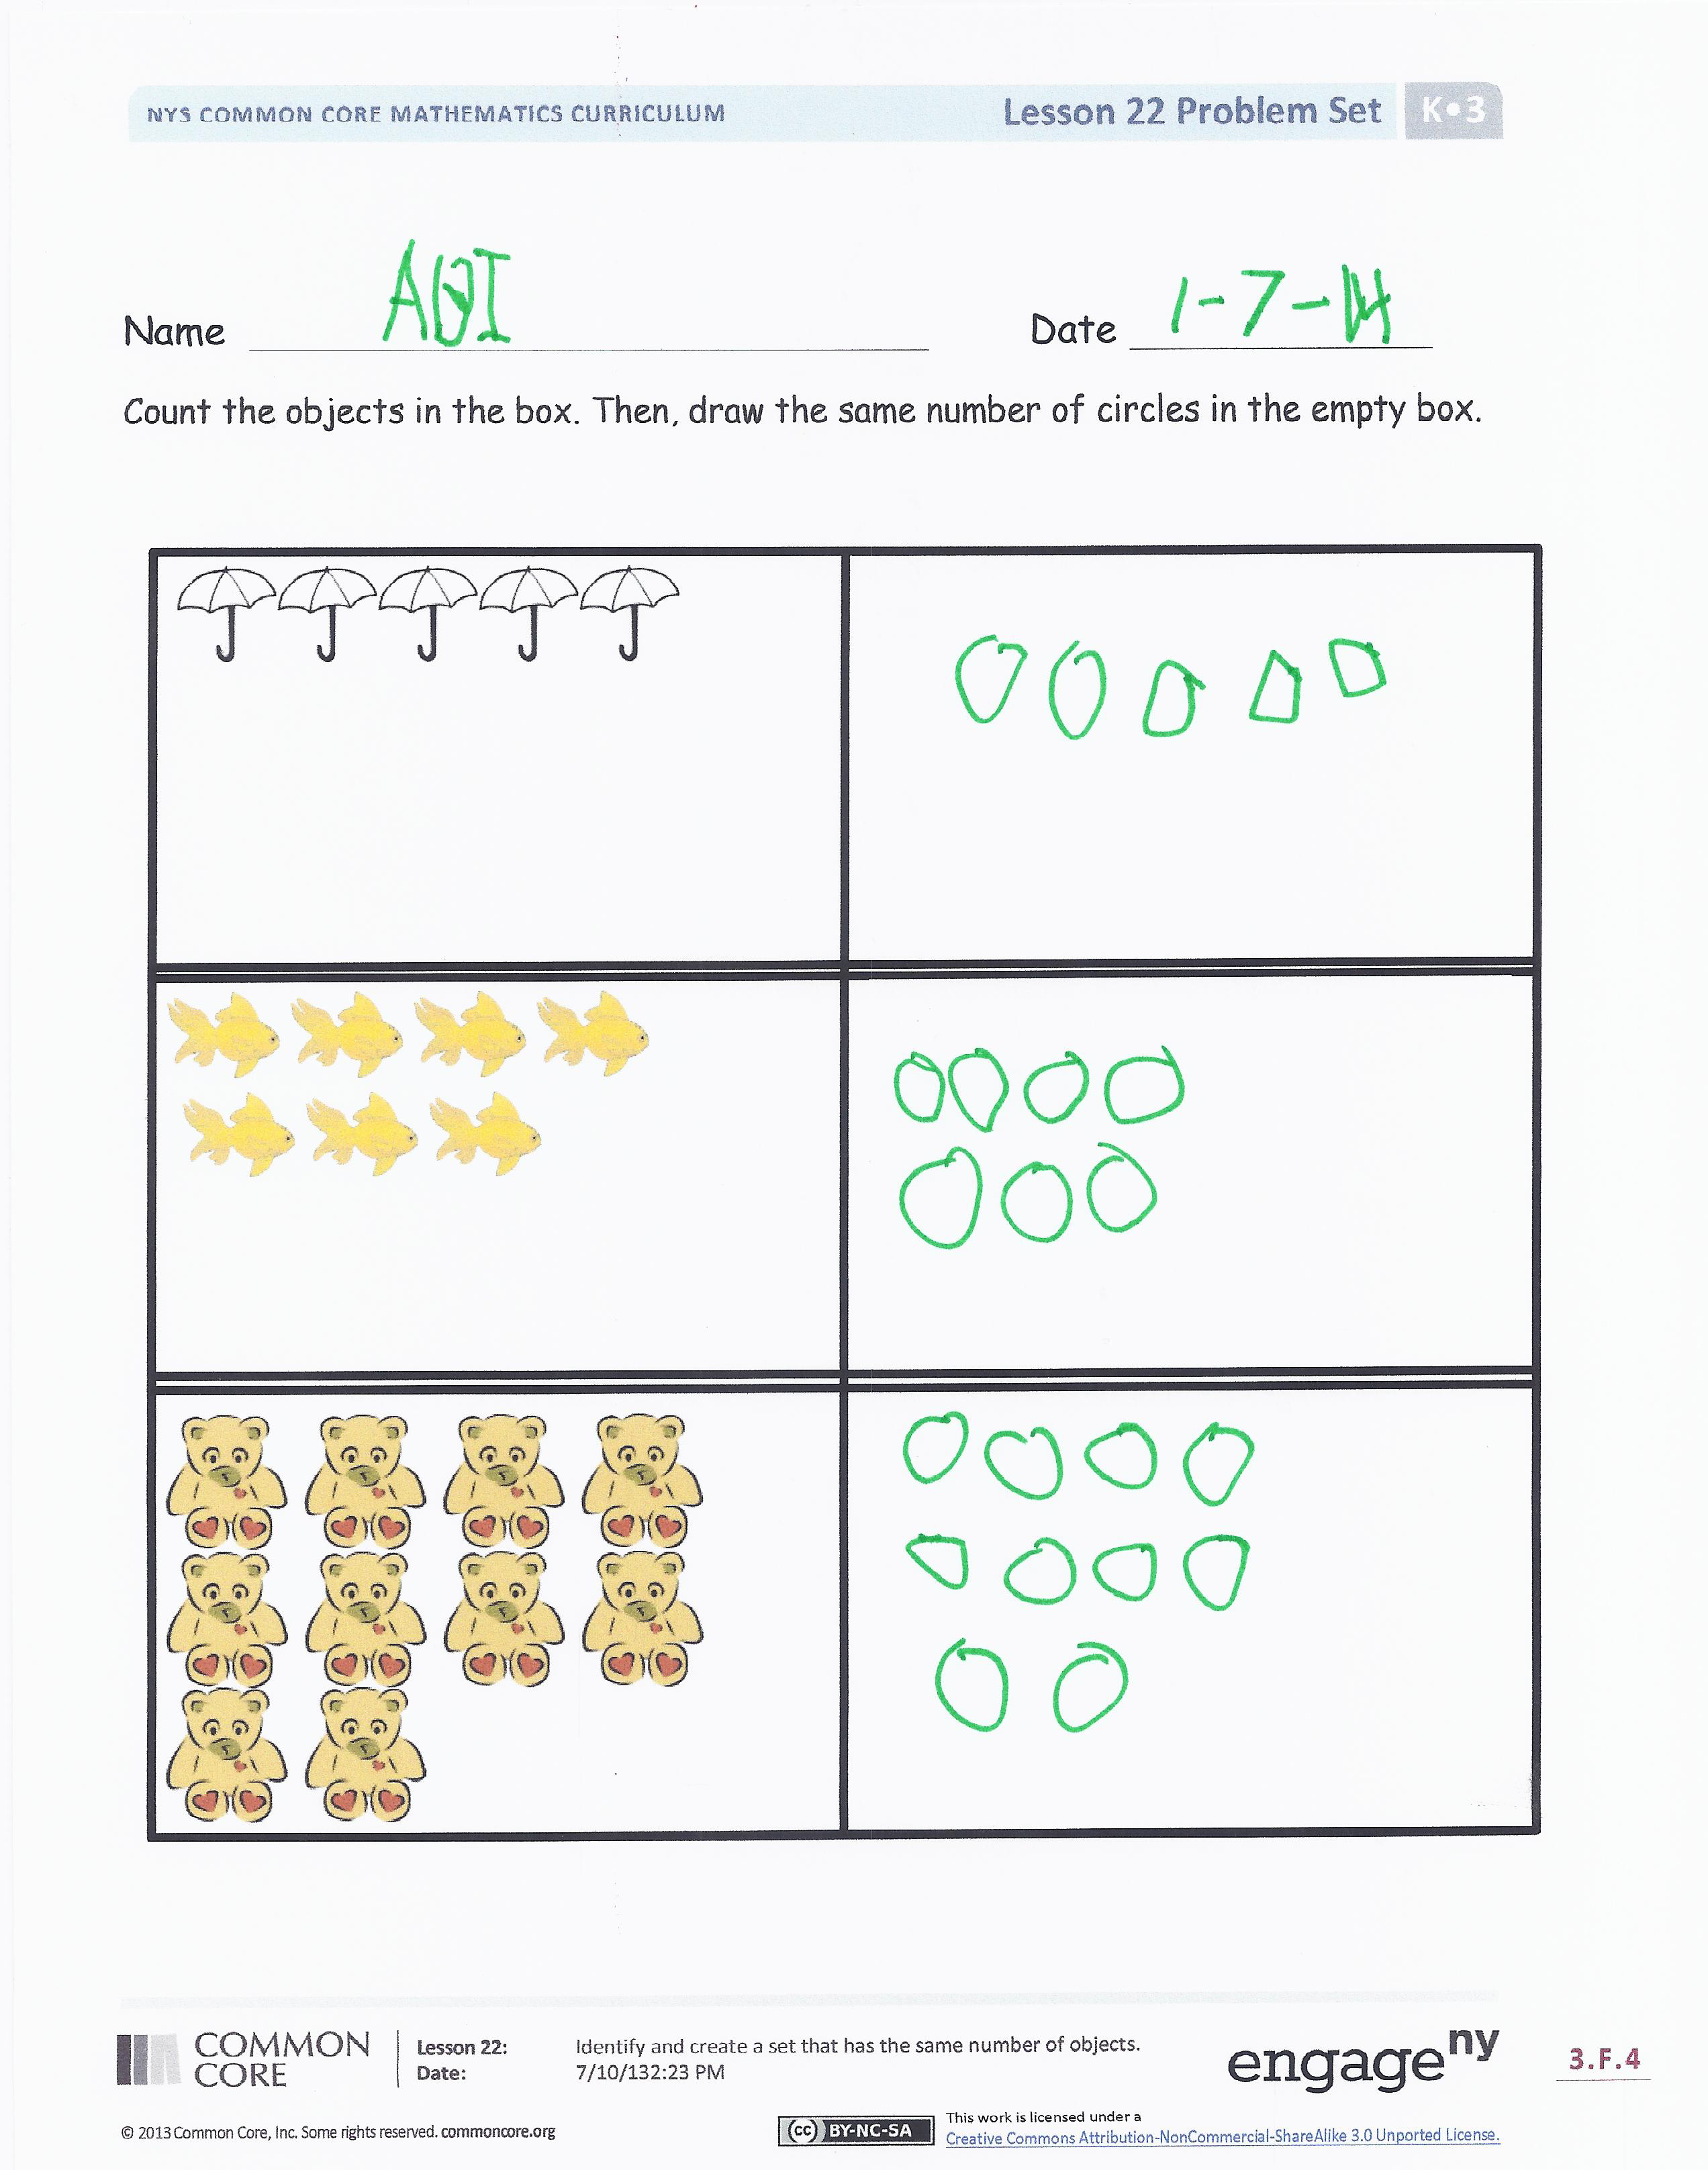 NYS COMMON CORE MATHEMATICS CURRICULUM
Lesson 22 Problem Set K•3
Name
Date 1-7-14
Count the objects in the box. Then, draw the same number of circles in the empty box.
COMMON
CORE
Lesson 22: Identify and create a set that has the same number of objects.
Date: 7/10/132:23 PM
engageny
3.F.4
© 2013 Common Core, Inc. Some rights reserved. commoncore.org
cc BY-NC-SA
This work is licensed under a
Creative Commons Attribution-NonCommercial-ShareAlike 3.0 Unported License.